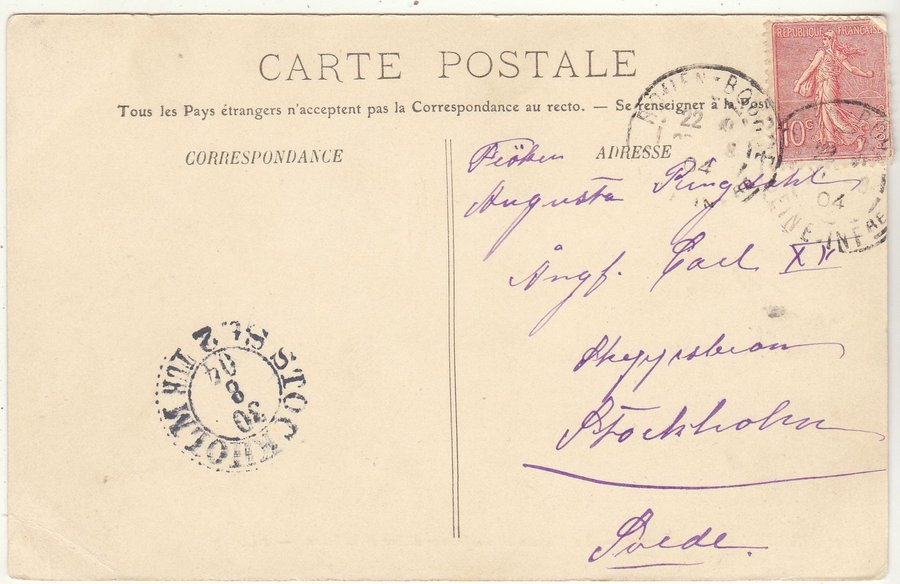 CARTE POSTALE
Tous les Pays étrangers n'acceptent pas la Correspondance au recto. — Se renseigner à la Poste
CORRESPONDANCE
ADRESSE
RÉPUBLIQUE FRANÇAISE
10c
22
04
SEINE-INFRE
04
Fröken
Augusta Ringdahl
Ångf. Carl XV
Skeppsbron
Stockholm
Suede.
STOCKHOLM
30
8
04